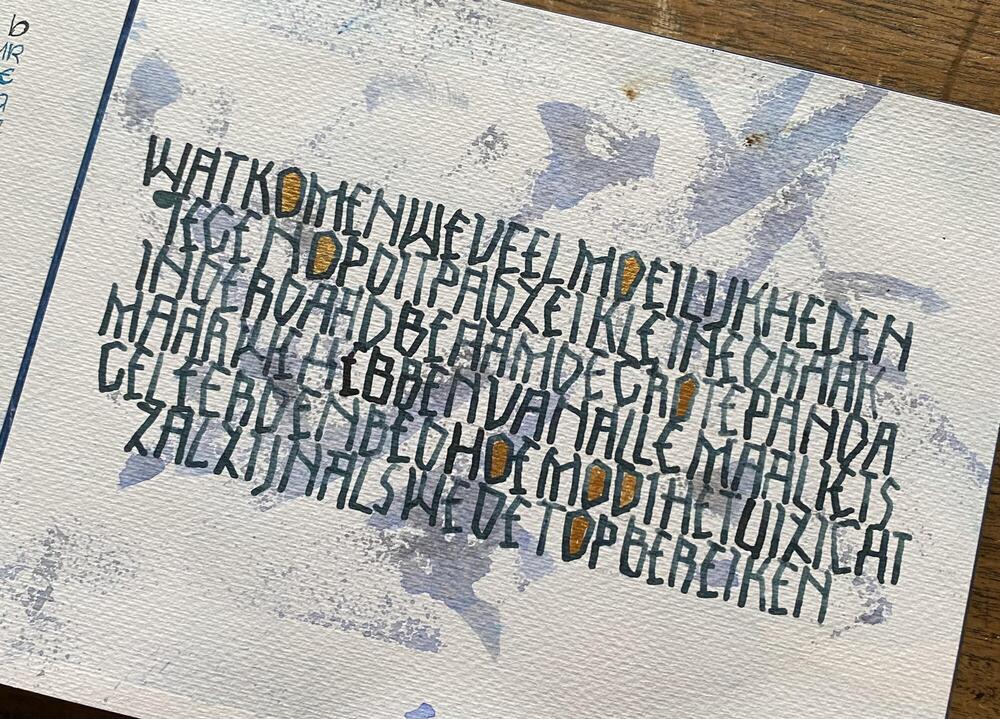 WATKOMENWEVEELMOEILIJKHEDEN
TEGENOPDITPADZEIKLEINEDRAAK
INDERDAADBEAAMDEGROTEPANDA
MAARWEHEBBENVANALLEMAALIETS
GELEERDENBEDHOEMOOIHETUIZICHT
ZALZIJNALSWEDETOPBEREIKEN